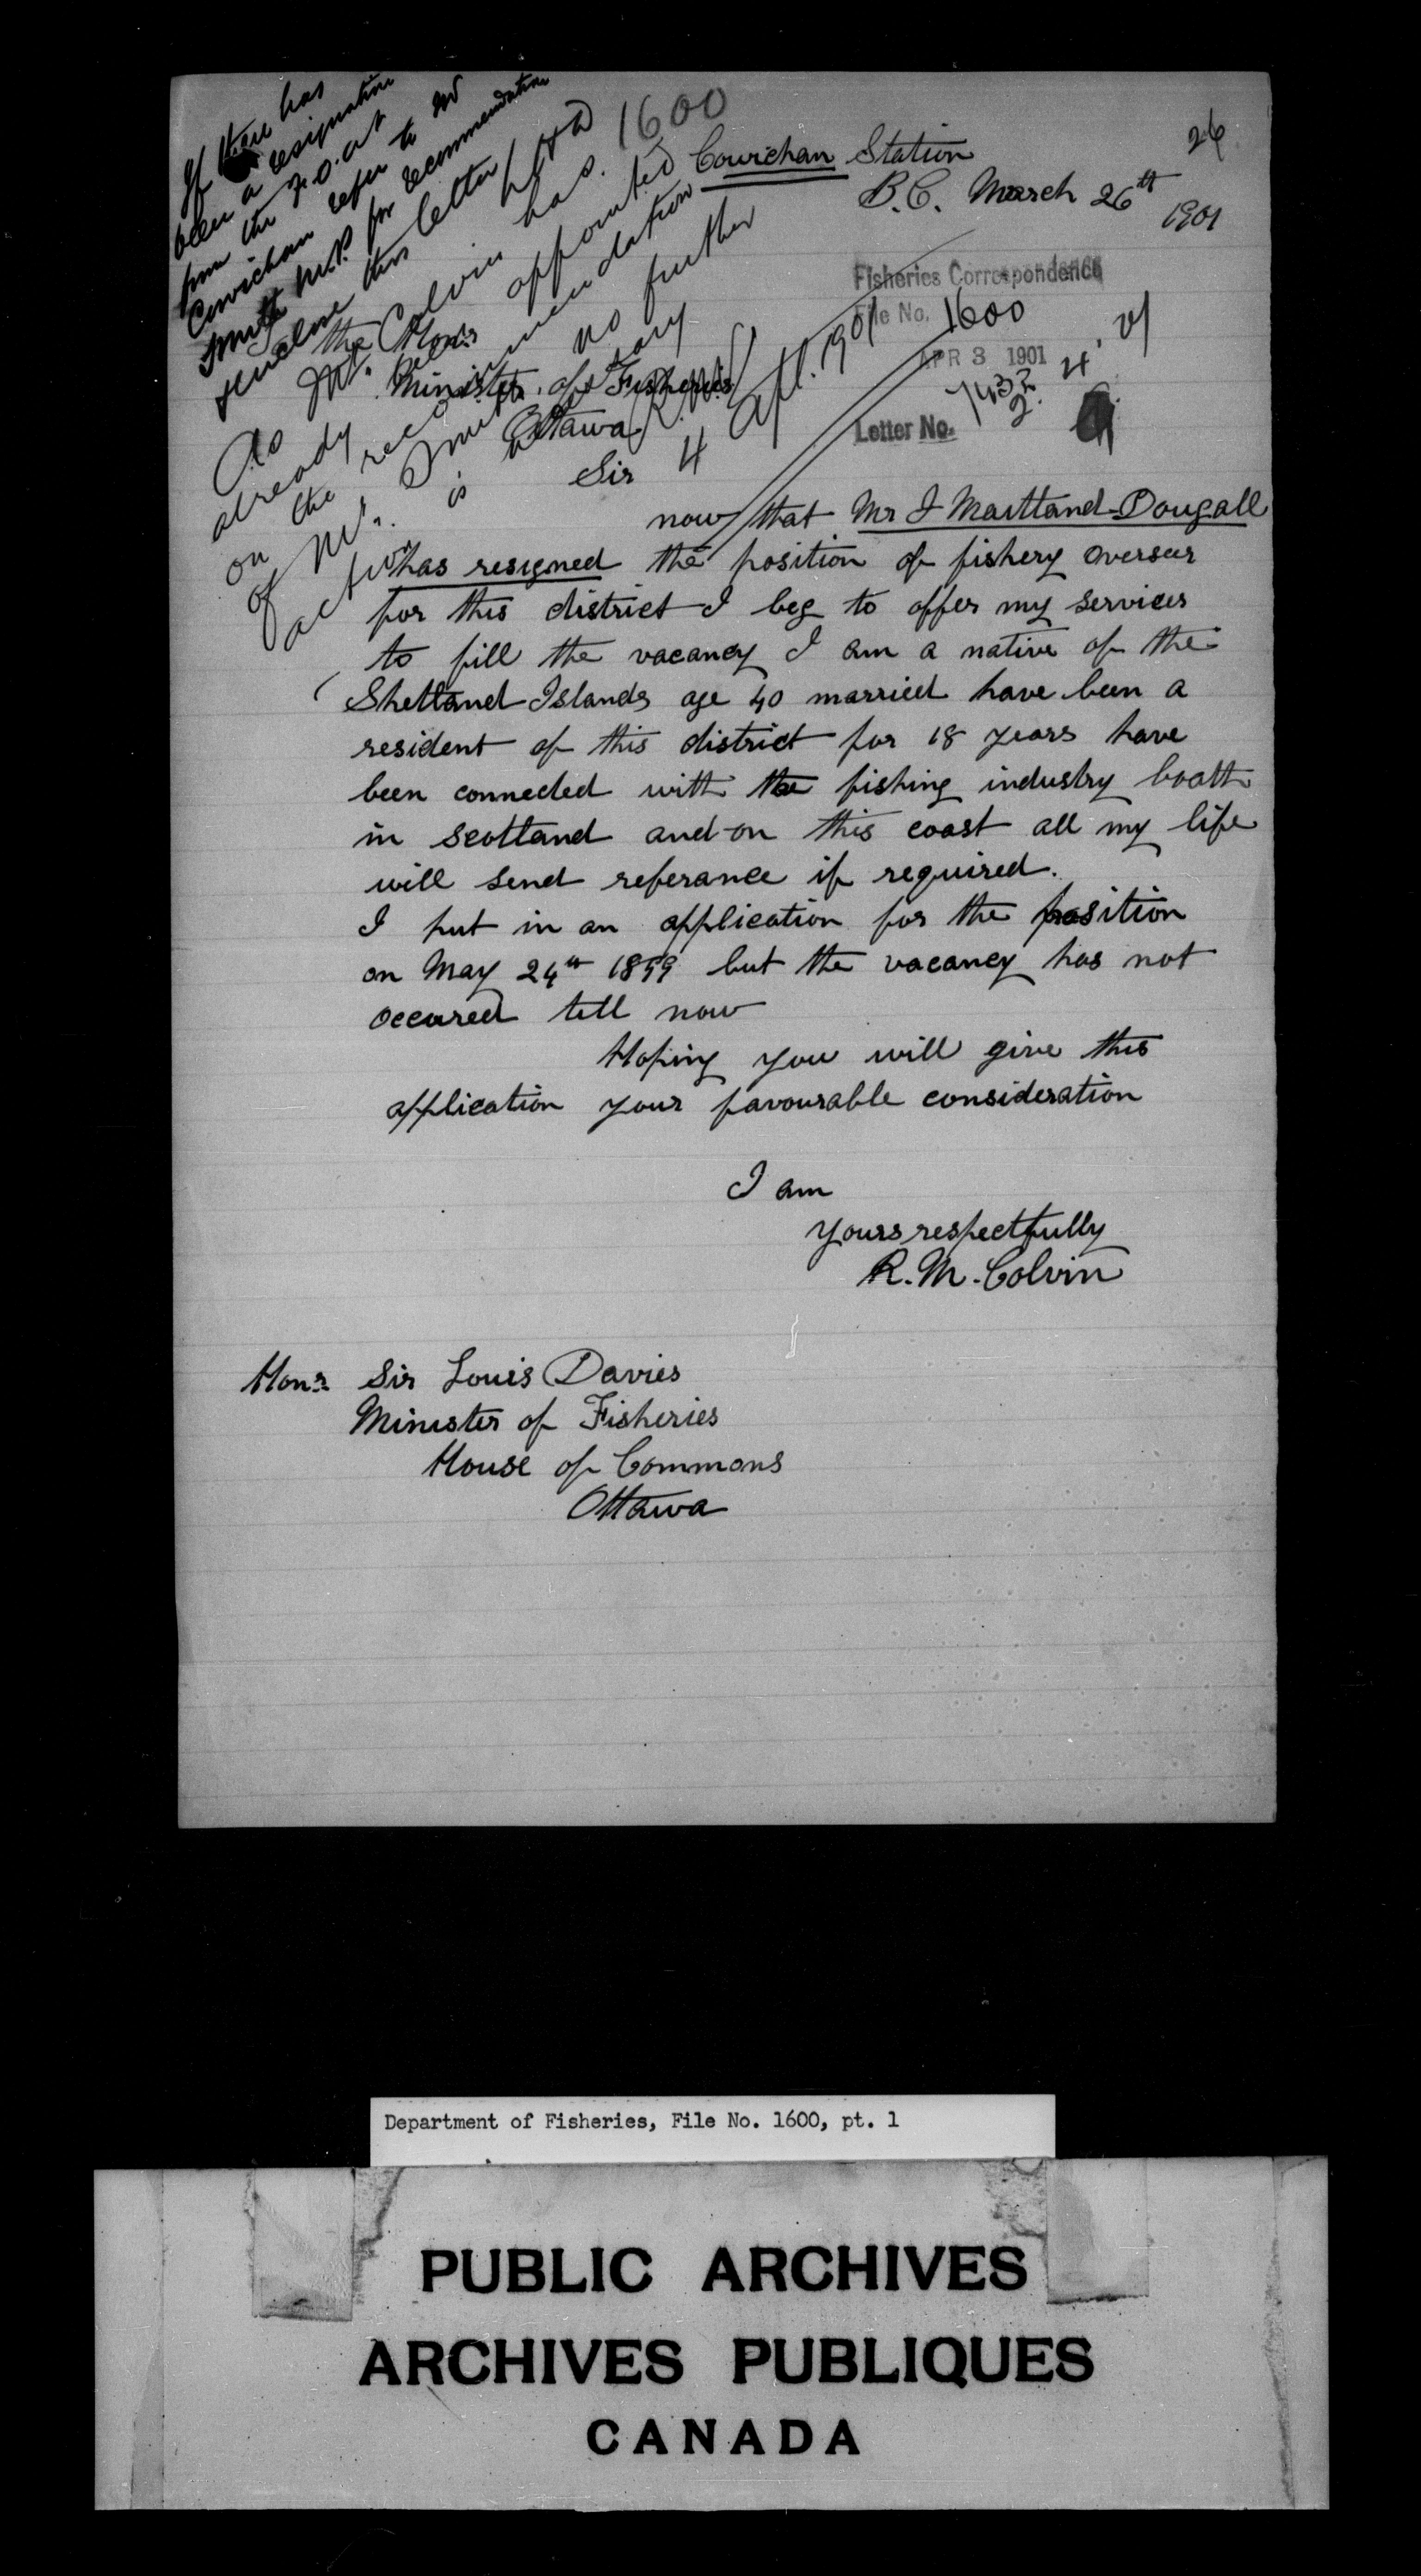 1600
26
Cowichan Station
B.C. March 26th
1901
If there has
been a resignation
from the F.O. at
Cowichan refer to Mr
Smith M.P. for recommendation
& enclose this letter
As Mr. Colvin has
already been appointed
on the recommendation
of Mr. Smith no further
action is necessary
4 Apl. 1901
Fisheries Correspondence
File No. 1600
APR 3 1901
Letter No.
the Honr
Minister of Fisheries
Ottawa
Sir
now that Mr J Maitland-Dougall
has resigned the position of fishery overseer
for this district I beg to offer my services
to fill the vacancy I am a native of the
Shetland Islands age 40 married have been a
resident of this district for 18 years have
been connected with the fishing industry boath
in Scotland and on this coast all my life
will send referance if required.
I put in an application for the position
on May 24th 1899 but the vacancy has not
occured till now
Hoping you will give this
application your favourable consideration
I am
yours respectfully
R. M. Colvin
Honr Sir Louis Davies
Minister of Fisheries
House of Commons
Ottawa
Department of Fisheries, File No. 1600, pt. 1
PUBLIC ARCHIVES
ARCHIVES PUBLIQUES
CANADA